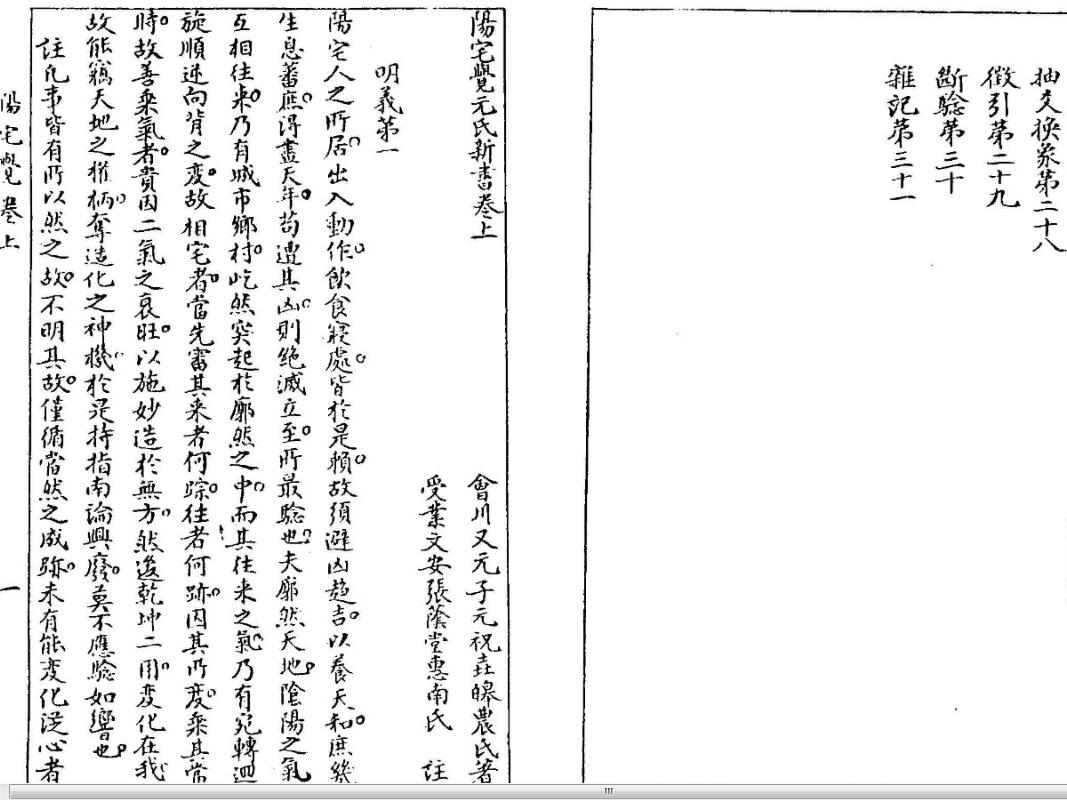 抽爻換象第二十八
徵引第二十九
斷驗第三十
雜記第三十一
陽宅覺元氏新書卷上
會川又元子元祝垚皞農氏著
受業文安張蔭堂惠南氏 註
明義第一
陽宅人之所居出入動作飲食寢處皆於是賴故須避凶趨吉以養天和庶幾
生息蕃庶得盡天年苟遭其凶則絕滅立至所最驗也夫廓然天地陰陽之氣
互相往來乃有城市鄉村屹然突起於廓然之中而其往來之氣乃有宛轉迴
旋順逆向背之变故相宅者當先審其來者何踪往者何跡因其所变乘其當
時故善乘氣者貴因二氣之衰旺以施妙造於無方然後乾坤二用变化在我
故能竊天地之權柄奪造化之神機於是持指南論興廢莫不應驗如響也
註凡事皆有所以然之故不明其故僅循當然之成跡未有能变化從心者
陽宅覺卷上
一